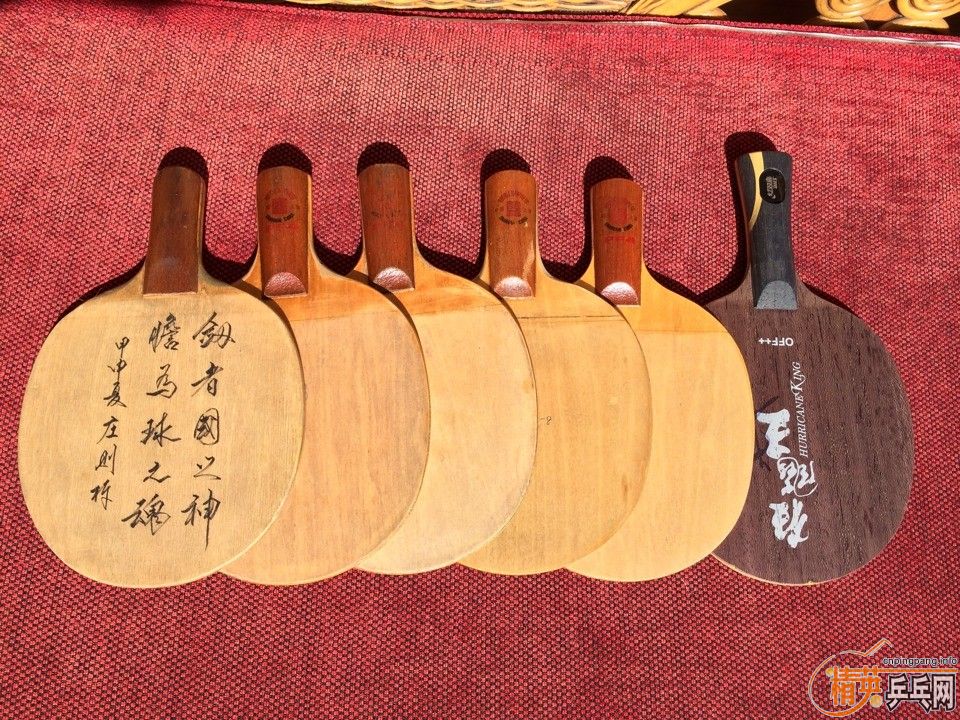 釼者國之神
膽為球之魂
甲申夏 庄則栋
OFF++
HURRICANE KING
狂飚王
cnpingpang.info
精英乒乓网